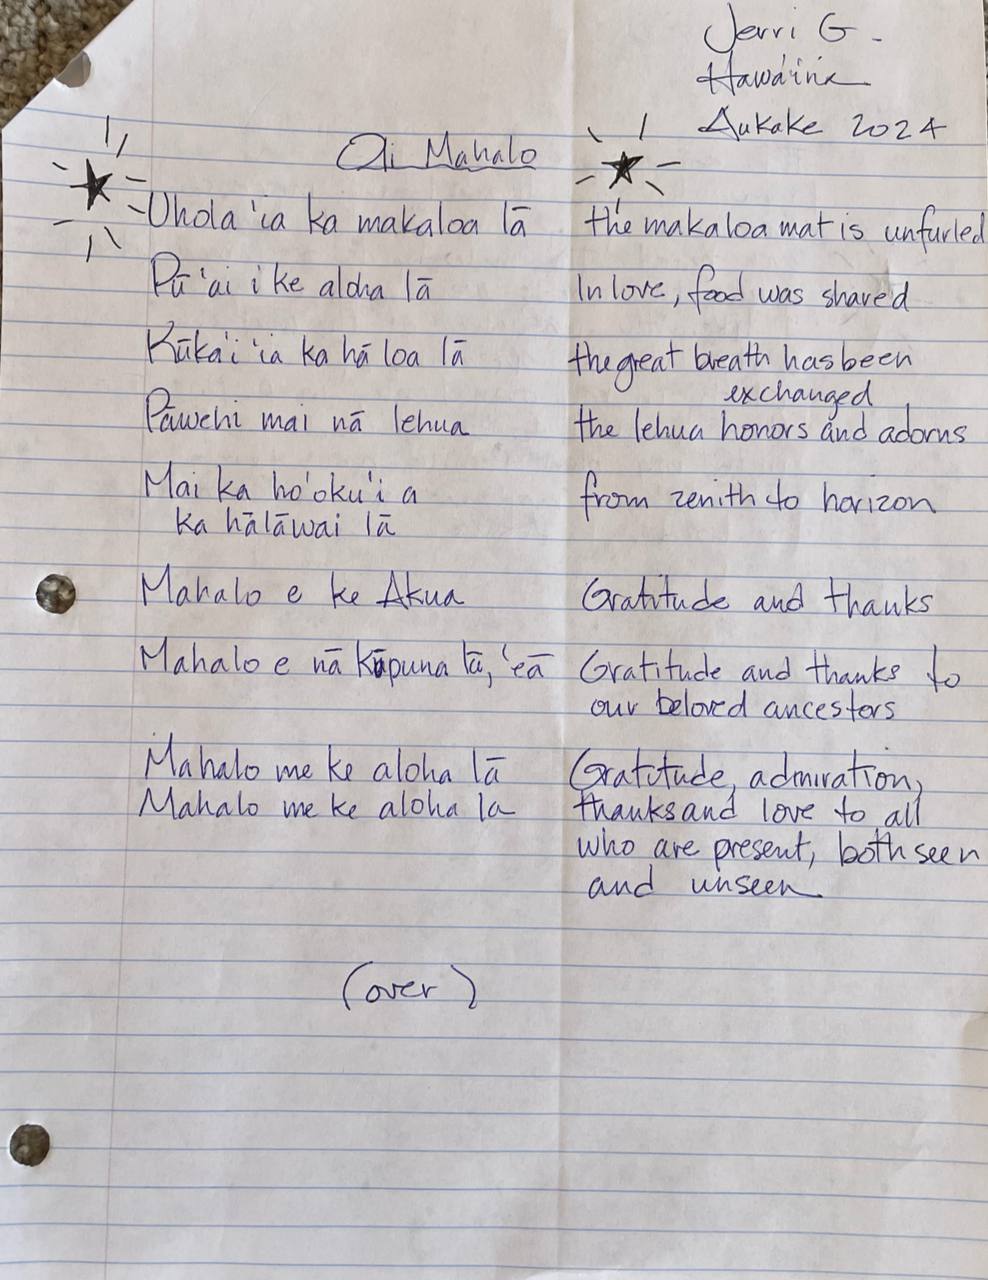 Jerri G.
Hawai'ina
Aukake 2024
Oli Mahalo
Uhola 'ia ka makaloa lā
the makaloa mat is unfurled
Pū 'ai i ke aloha lā
In love, food was shared
Kūka'i 'ia ka hā loa lā
the great breath has been
exchanged
Pāwehi mai nā lehua
the lehua honors and adorns
Mai ka ho'oku'i a
ka hālāwai lā
from zenith to horizon
Mahalo e ke Akua
Gratitude and thanks
Mahalo e nā Kūpuna lā, 'eā
Gratitude and thanks to
our beloved ancestors
Mahalo me ke aloha lā
Mahalo me ke aloha la
Gratitude, admiration,
thanks and love to all
who are present, both seen
and unseen.
(over)